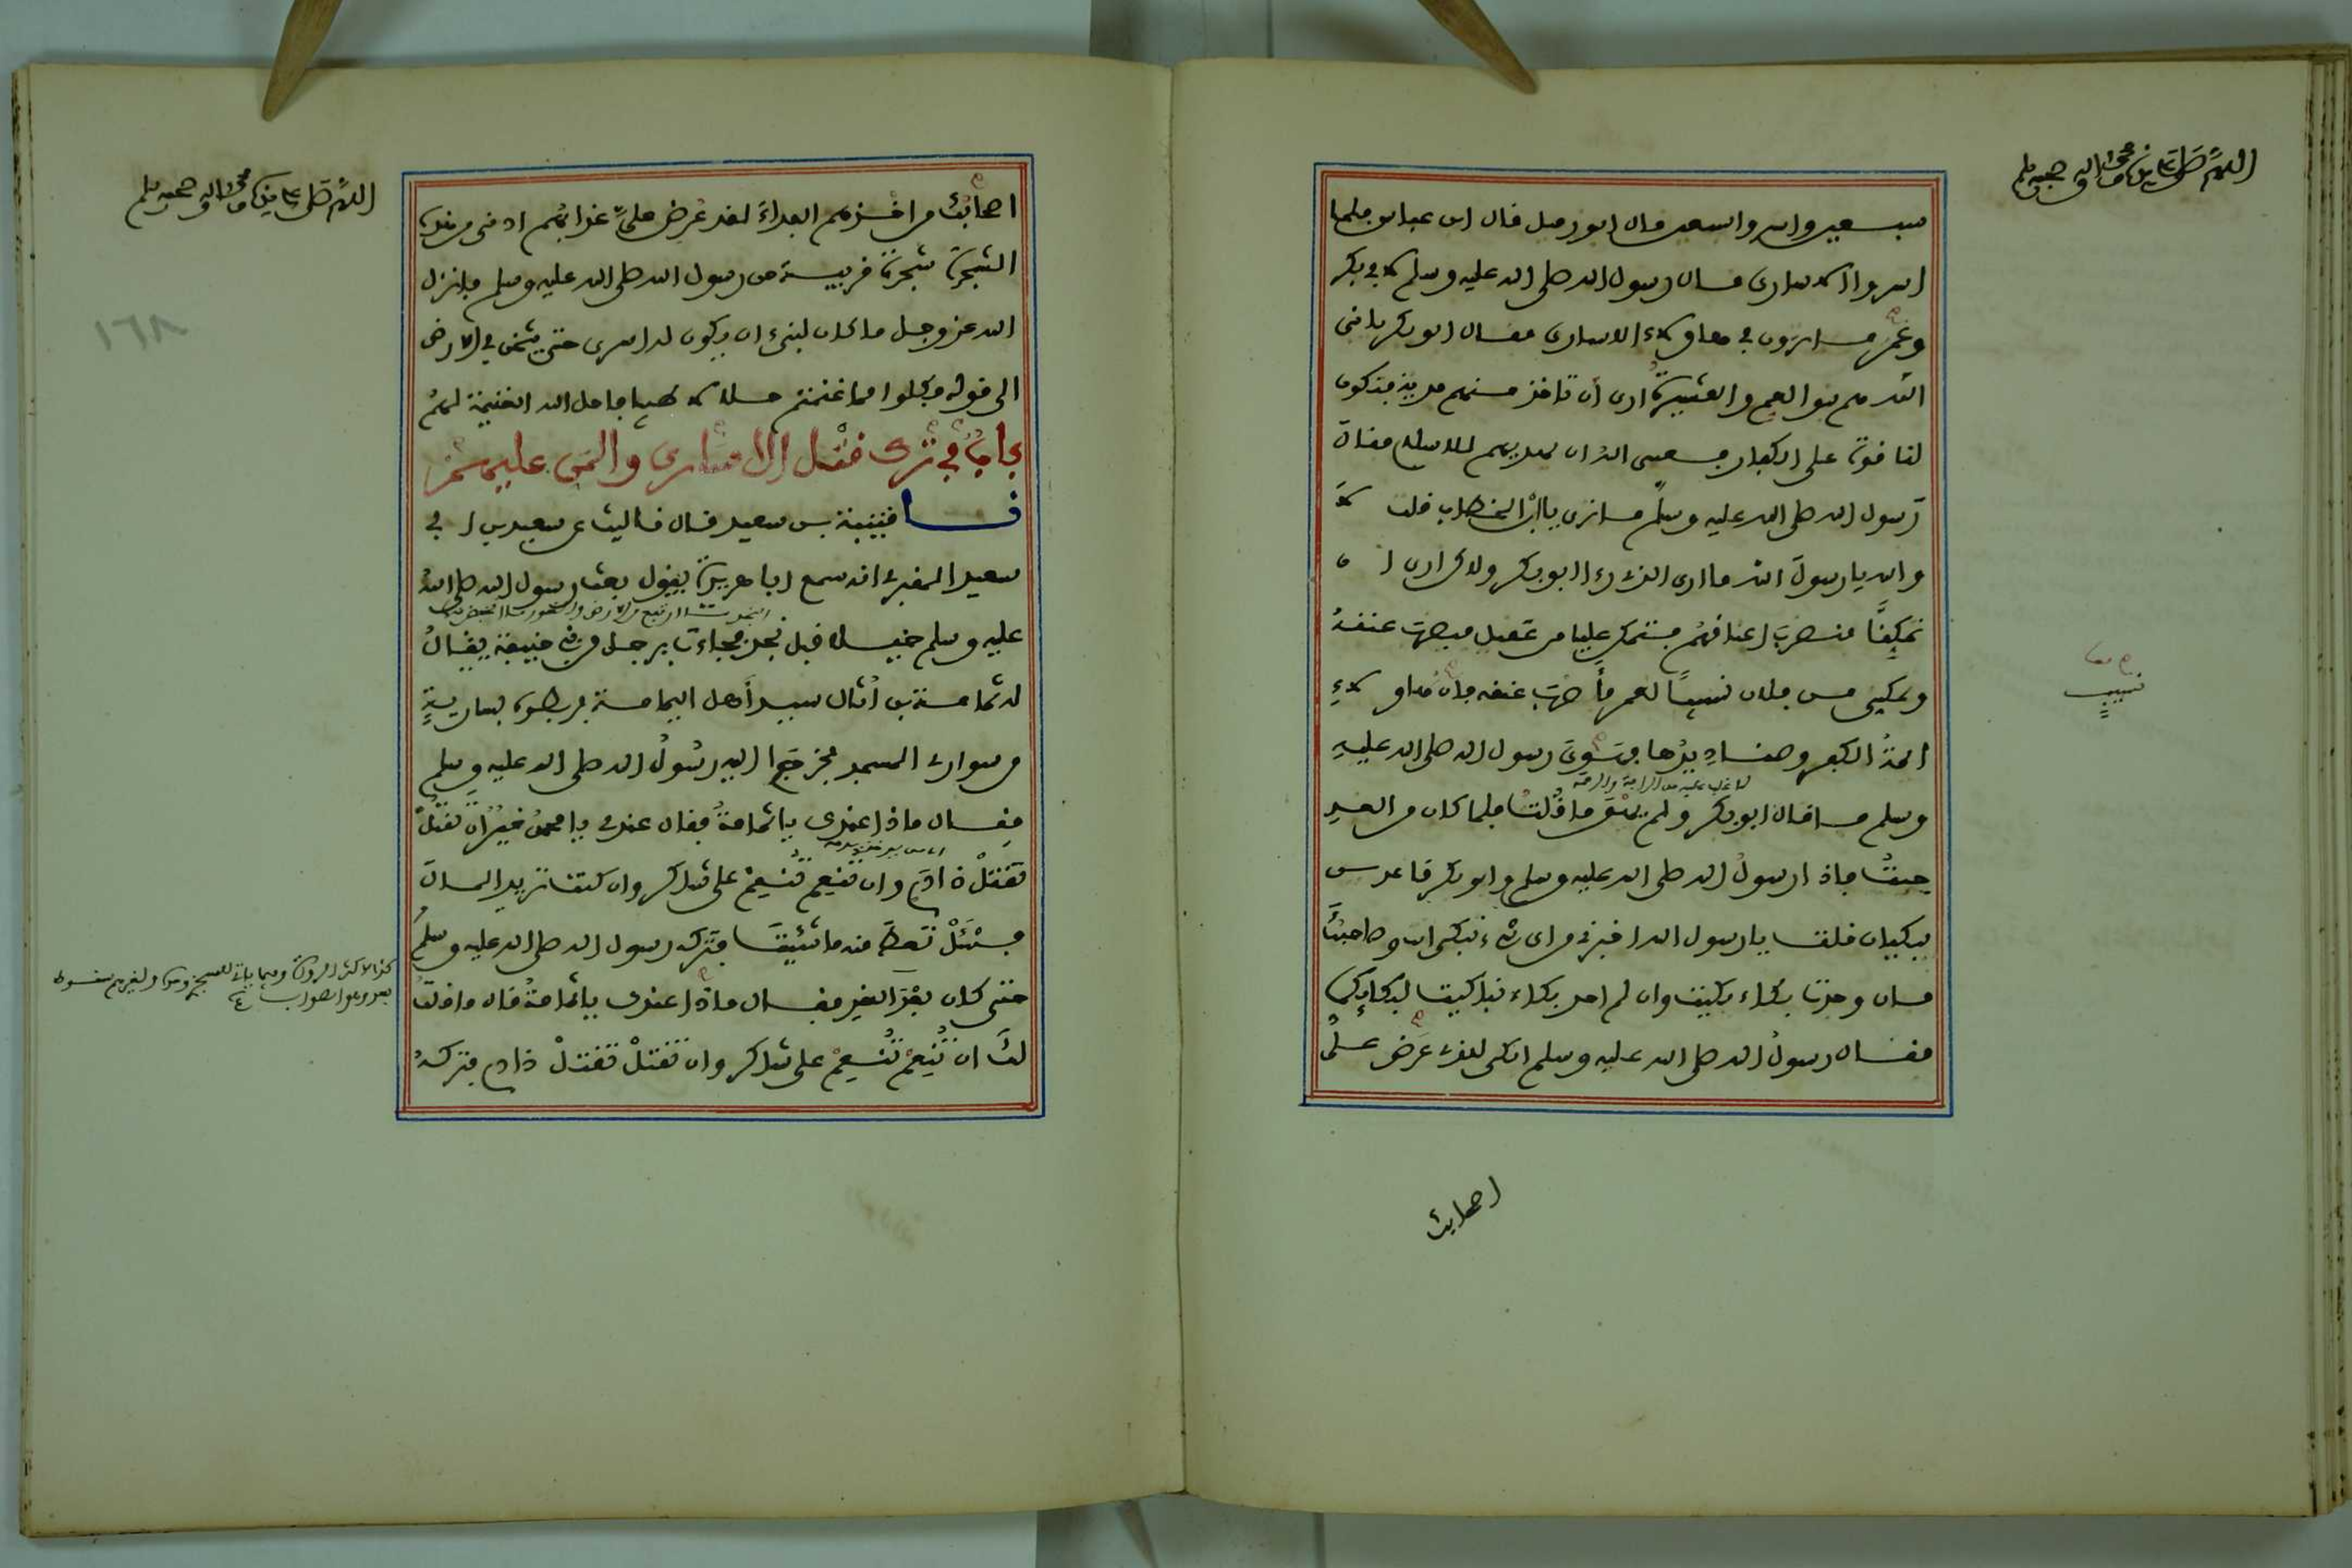 اللهم صل على سيدنا محمد واله وصحبه وسلم
سبعين واسروا سبعين قال ابو زميل قال ابن عباس فلما
اسروا الاسارى قال رسول الله صلى الله عليه وسلم لابي بكر
وعمر ما ترون في هاولاء الاسارى فقال ابو بكر يا نبي
الله هم بنو العم والعشيرة ارى ان تاخذ منهم فدية فتكون
لنا قوة على الكفار فعسى الله ان يهديهم للاسلام فقال
رسول الله صلى الله عليه وسلم ما ترى يا ابن الخطاب قلت لا
والله يا رسول الله ما ارى الذي رءا ابو بكر ولاكني ارى ان
تمكنا فنضرب اعناقهم فتمكن عليا من عقيل فيضرب عنقه
وتمكني من فلان نسيبا لعمر فأضرب عنقه فان هاولاء
ائمة الكفر وصناديدها فهوي رسول الله صلى الله عليه
وسلم ما قال ابو بكر ولم يهو ما قلت فلما كان من الغد
جئت فاذا رسول الله صلى الله عليه وسلم وابو بكر قاعدين
يبكيان قلت يا رسول الله اخبرني من اي شيء تبكي انت وصاحبك
فان وجدت بكاء بكيت وان لم اجد بكاء تباكيت لبكائكما
فقال رسول الله صلى الله عليه وسلم ابكي للذي عرض علي
نسيب
اصحابك
اللهم صل على سيدنا محمد واله وصحبه وسلم
١٦٨
اصحابك من اخذهم الفداء لقد عرض علي عذابهم ادنى من هذه
الشجرة شجرة قريبة من رسول الله صلى الله عليه وسلم فانزل
الله عز وجل ما كان لنبيء ان يكون له اسرى حتى يثخن في الارض
الى قوله فكلوا مما غنمتم حلالا طيبا فاحل الله الغنيمة لهم
باب في ترك قتل الاسارى والمن عليهم
نا قتيبة بن سعيد قال نا ليث عن سعيد بن ابي
سعيد المقبري انه سمع ابا هريرة يقول بعث رسول الله صلى الله
عليه وسلم خيلا قبل نجد فجاءت برجل من بني حنيفة يقال
له ثمامة بن أثال سيد أهل اليمامة فربطوه بسارية
من سواري المسجد فخرج اليه رسول الله صلى الله عليه وسلم
فقال ماذا عندك يا ثمامة فقال عندي يا محمد خير ان تقتل
تقتل ذا دم وان تنعم تنعم على شاكر وان كنت تريد المال
فسئل تعط منه ما شيت فتركه رسول الله صلى الله عليه وسلم
حتى كان بعد الغد فقال ماذا عندك يا ثمامة قال ما قلت
لك ان تنعم تنعم على شاكر وان تقتل تقتل ذا دم فتركه